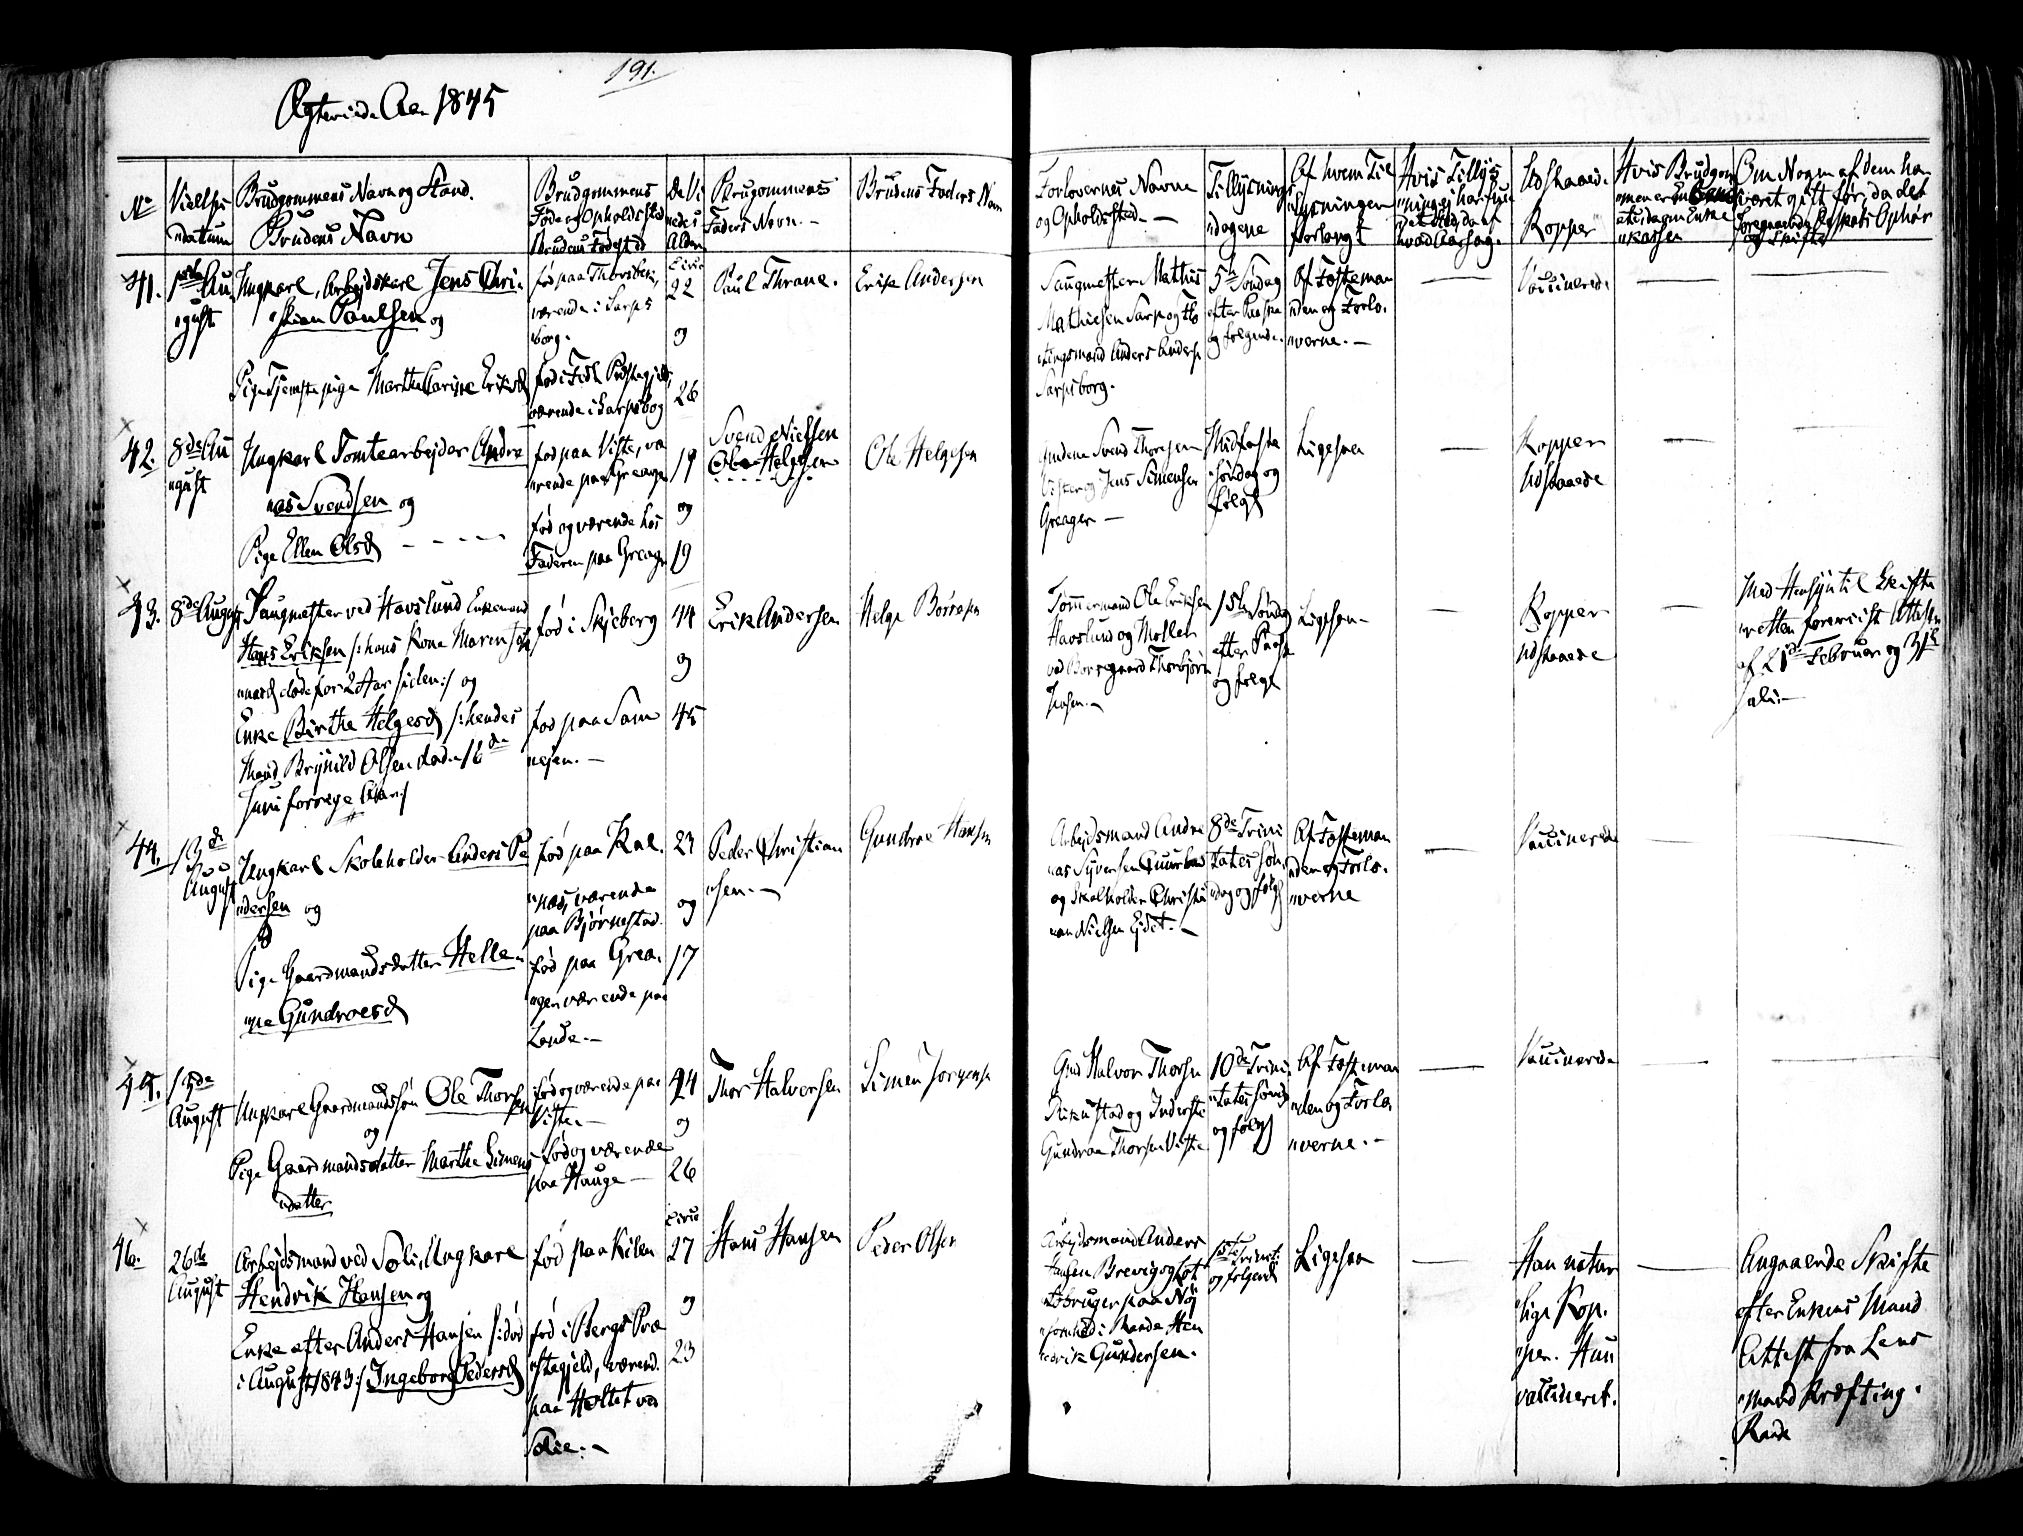 191.
Ægteviede Aar 1845
No
Vielses
datum
Brudgommens Navn og Stand.
Brudens Navn
Brudgommens
Føde og Opholdssted
Brudens Fødested
De Vi
edes
Alder
Brudgommens
Faders Navn. —
Brudens Faders Navn
Forlovernes Navne
og Opholdssted. —
Tillysnings
dagene
Af hvem Til
lysningen
forlangt
Hvis Tillys
ning ej har fun
det Sted, da af
hvad Aarsag.
Udstaaede
Kopper
Hvis Brudgom
men er Enkemand
Enke
kassen
Om Nogen af dem ha
været gift før, da det
foregaaende Ægteskabs Ophør
og Skifte
41.
1ste Au
gust
Ungkarl, Arbejdskarl Jens Chri
stian Paulsen og
Pige Tjenstepige Marthe Carine Eriksd
fød paa Thorsberg,
værende i Sarps
borg.
fød i Præstegjeld,
værende i Sarpsborg
circa
22
og
26
Paul Thrane.
Erik Andersen
Saugmester Mathis
Mathiesen Sarp og
Anders Anders
Sarpsborg.
5te Søndag
efter Paaske
og følgende.
Af Fæsteman
den og Forlo
verne. —
—
Vaccinerede
—
42.
8de Au
gust
Ungkarl Tomtearbejder Andre
as Svendsen og
Pige Ellen Olsd
fød paa Viste, væ
rende paa Greager
fød og værende hos
Faderen paa Greager
19
og
19
Svend Nielsen
Ole Helgesen
Ole Helgesen
Gudene Svend Thoresen
Viste og Jens Simensen
Greager —
Midfaste
søndag og
følgd
Ligesaa
—
Kopper
Udstaaede
—
43.
8de August
Saugmester ved Hafslund Enkemand
Hans Eriksen /: hans Kone Maren
døde for 2 Aar siden :/ og
Enke Birthe Helgesd /: hendes
Mand Brynild Olsen døde 16de
Juni forrige Aar :/
fød i Skjeberg
fød paa Sam
nesen. —
44
og
45
Erik Andersen
Helge Børresen
Tømmermand Ole Eriksen
Havslund og Møller
ved Borregaard Thorbjørn
Josen. —
1ste Søndag
efter Paaske
og følgd
Ligesaa —
—
Kopper
Udstaaede
—
Med Hensyn til Skifte
retten forevist Attester
af 21de Februar og 31te
Juli. —
44.
13de
August
Ungkarl Skoleholder Anders Pe
dersen og
Pige Gaardmandsdatter Helle
ne Gundroesd
fød paa Kal
næs, værende
paa Bjørnestad.
fød paa Grea
ger værende paa
Lande. —
23
og
17
Peder Christian
sen. —
Gundroe Hansen
Arbejdsmand Andre
as Syversen
og Skoleholder Christi
an Nielsen Ejdet. —
8de Trini
tates søn
dag og følgd
Af Fæsteman
den og Forlo
verne
—
Vaccinerede
—
45.
15de
August
Ungkarl Gaardmandssøn Ole Thorsen
og
Pige Gaardmandsdatter Marthe Simens
datter
fød og værende paa
Viste. —
fød og værende
paa Hauge —
24
og
26
Thor Halvorsen
Simen Jørgensen
Gmd Halvor Thorsen
og Inderste
Gundroe Thorsen Viste
10de Trini
tates sønd
og følgd
Af Fæsteman
den og Forlo
verne. —
—
Vaccinerede
—
46.
26de
August
Arbejdsmand ved Solie, Ungkarl
Hendrik Hansen og
Enke efter Anders Hansen /: død
i August 1843 :/ Ingeborg Pedersd
fød paa Kilen
fød i Bergs Præ
stegjeld, værend
paa Holtet ved
Solie. —
circa
27
og
23
Hans Hansen
Peder Olsen
Arbejdsmand Anders
Hansen Brevig og
bruger paa Nøj
somhed i Rande Hen
drik Gundersen.
Trinit.
og følgend
Ligesaa
—
Han natur
lige Kop
per. Hun
vaccineret.
—
Angaaende Skifte
efter Enkens Mand
Attest fra Lens
mand Kræfting.
Raade